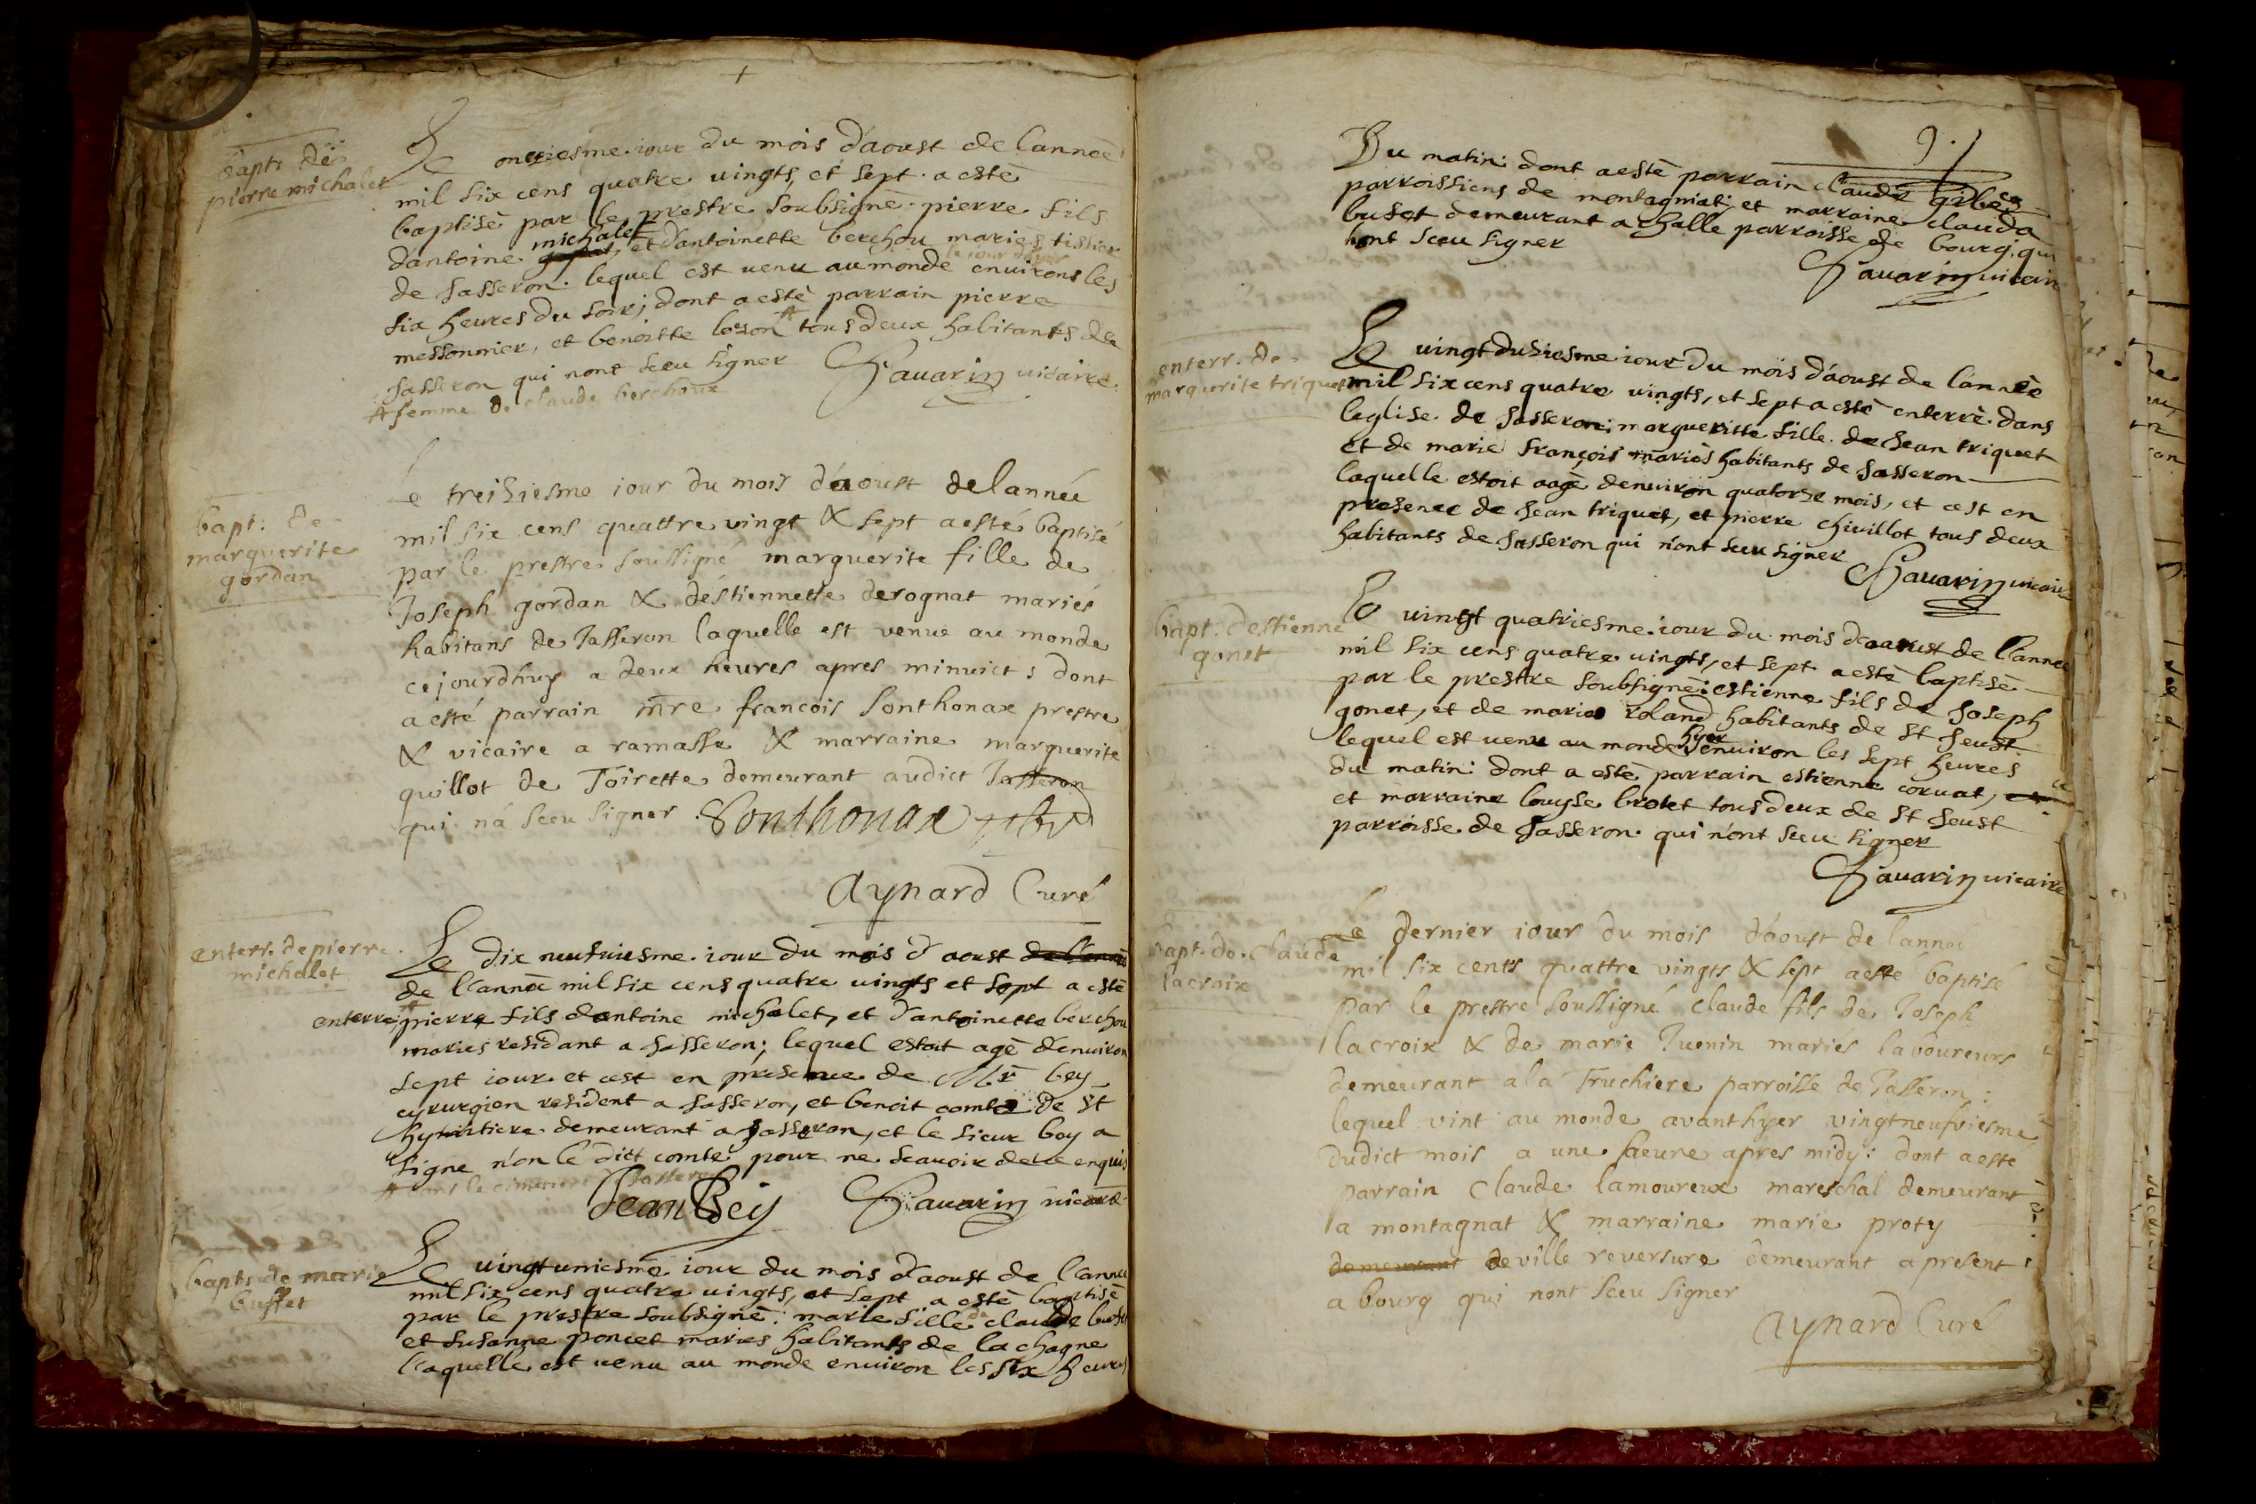 bapt. de
pierre michalet
Le onziesme iour du mois d'aoust de l'annee
mil six cens quatre vingts, et sept a estè
baptisè par le prestre soubsignè pierre fils
michalet
dantoine et dantoinette berchou mariés
de Jasseron. lequel est venu au monde environs les
six heures du soir; dont a estè parrain pierre
messonnier, et benoitte tous deux habitants de
Jasseron qui nont sceu signer Savarin vicaire
# femme de claude berchoux
bapt. de
marguerite
gordan
Le treiziesme iour du mois d'aoust de lannée
mil six cens quattre vingt & sept a esté baptisé
par le prestre soussigné marguerite fille de
Joseph gordan & déstiennette derognat mariés
habitans de Jasseron laquelle est venue au monde
cejourdhuy a deux heures apres minuict; dont
a esté parrain mre francois Sonthonax prestre
& vicaire a ramasse & marraine marguerite
quillot de Toirette demeurant audict Jasseron
qui n'a sceu signer. Sonthonax
Aynard Curé
enterr. de pierre
michalet
Le dix neufviesme iour du mois d'aoust de l'année
de l'année mil six cens quatre vingts et sept a estè
enterrè # pierre fils dantoine michalet, et d'antoinette berchou
mariés residant a Jasseron; lequel estoit agè denviron
sept iour et cest en presence de Mr bey
cyrurgien resident a Jasseron, et benoit comte de st
hymetiere demeurant a Jasseron, et le sieur bey a
signe n'on lè ditt comte pour ne scavoir de ce enquis
# dans le cimetiere de Jasseron
Jean Bey Savarin vicaire
bapt. de marie
buffet
Le vingtuniesme iour du mois d'aoust de l'année
mil six cens quatre vingts, et sept a estè baptisè
par le prestre soubsignè; marie fille de claude
et susanne poncet mariés habitants de la chagne
laquelle est venu au monde environ les six heures
9.
Du matin: dont a estè parrain claude
parroissiens de montagniat; et marraine clauda
buset demeurant a halle parroisse de bourg. qui
nont sceu signer
Savarin vicaire
enterr. de
marguerite triquet
Le vingtduziesme iour du mois d'aoust de l'année
mil six cens quatre vingts, et sept a estè enterrè dans
leglise de Jasseron; margueritte fille de Jean triquet
et de marie françois mariès habitants de Jasseron
laquelle estoit aagè denviron quatorze mois, et cest en
presence de Jean triquet, et pierre chivillot tous deux
habitants de Jasseron qui n'ont sceu signer
Savarin vicaire
bapt. destienne
gonet
Le vingt quatriesme iour du mois d'aoust de l'annee
mil six cens quatre vingts, et sept a estè baptisè
par le prestre soubsignè: estienne fils de Joseph
gonet, et de marie roland habitants de st Jeust
lequel est venu au monde hyer environ les sept heures
du matin: dont a estè parrain estienne corvat,
et marraine louyse brotet tous deux de st Jeust
parroisse de Jasseron. qui n'ont sceu signer
Savarin vicaire
bapt. de. claude
lacroix
Le dernier iour du mois d'aoust de l'année
mil six cents quattre vingts & sept a esté baptisé
par le prestre soussigné claude fils de Joseph
lacroix & de marie Juenin mariés laboureurs
demeurant a la Truchiere parroisse de Jasseron;
lequel vint au monde avanthyer vingtneufviesme
dudict mois a une heure apres midy: dont a esté
parrain Claude lamoureux mareschal demeurant
a montagnat & marraine marie proty
demeurant de ville reversure demeurant a present
a bourg qui nont sceu signer
Aynard Curé